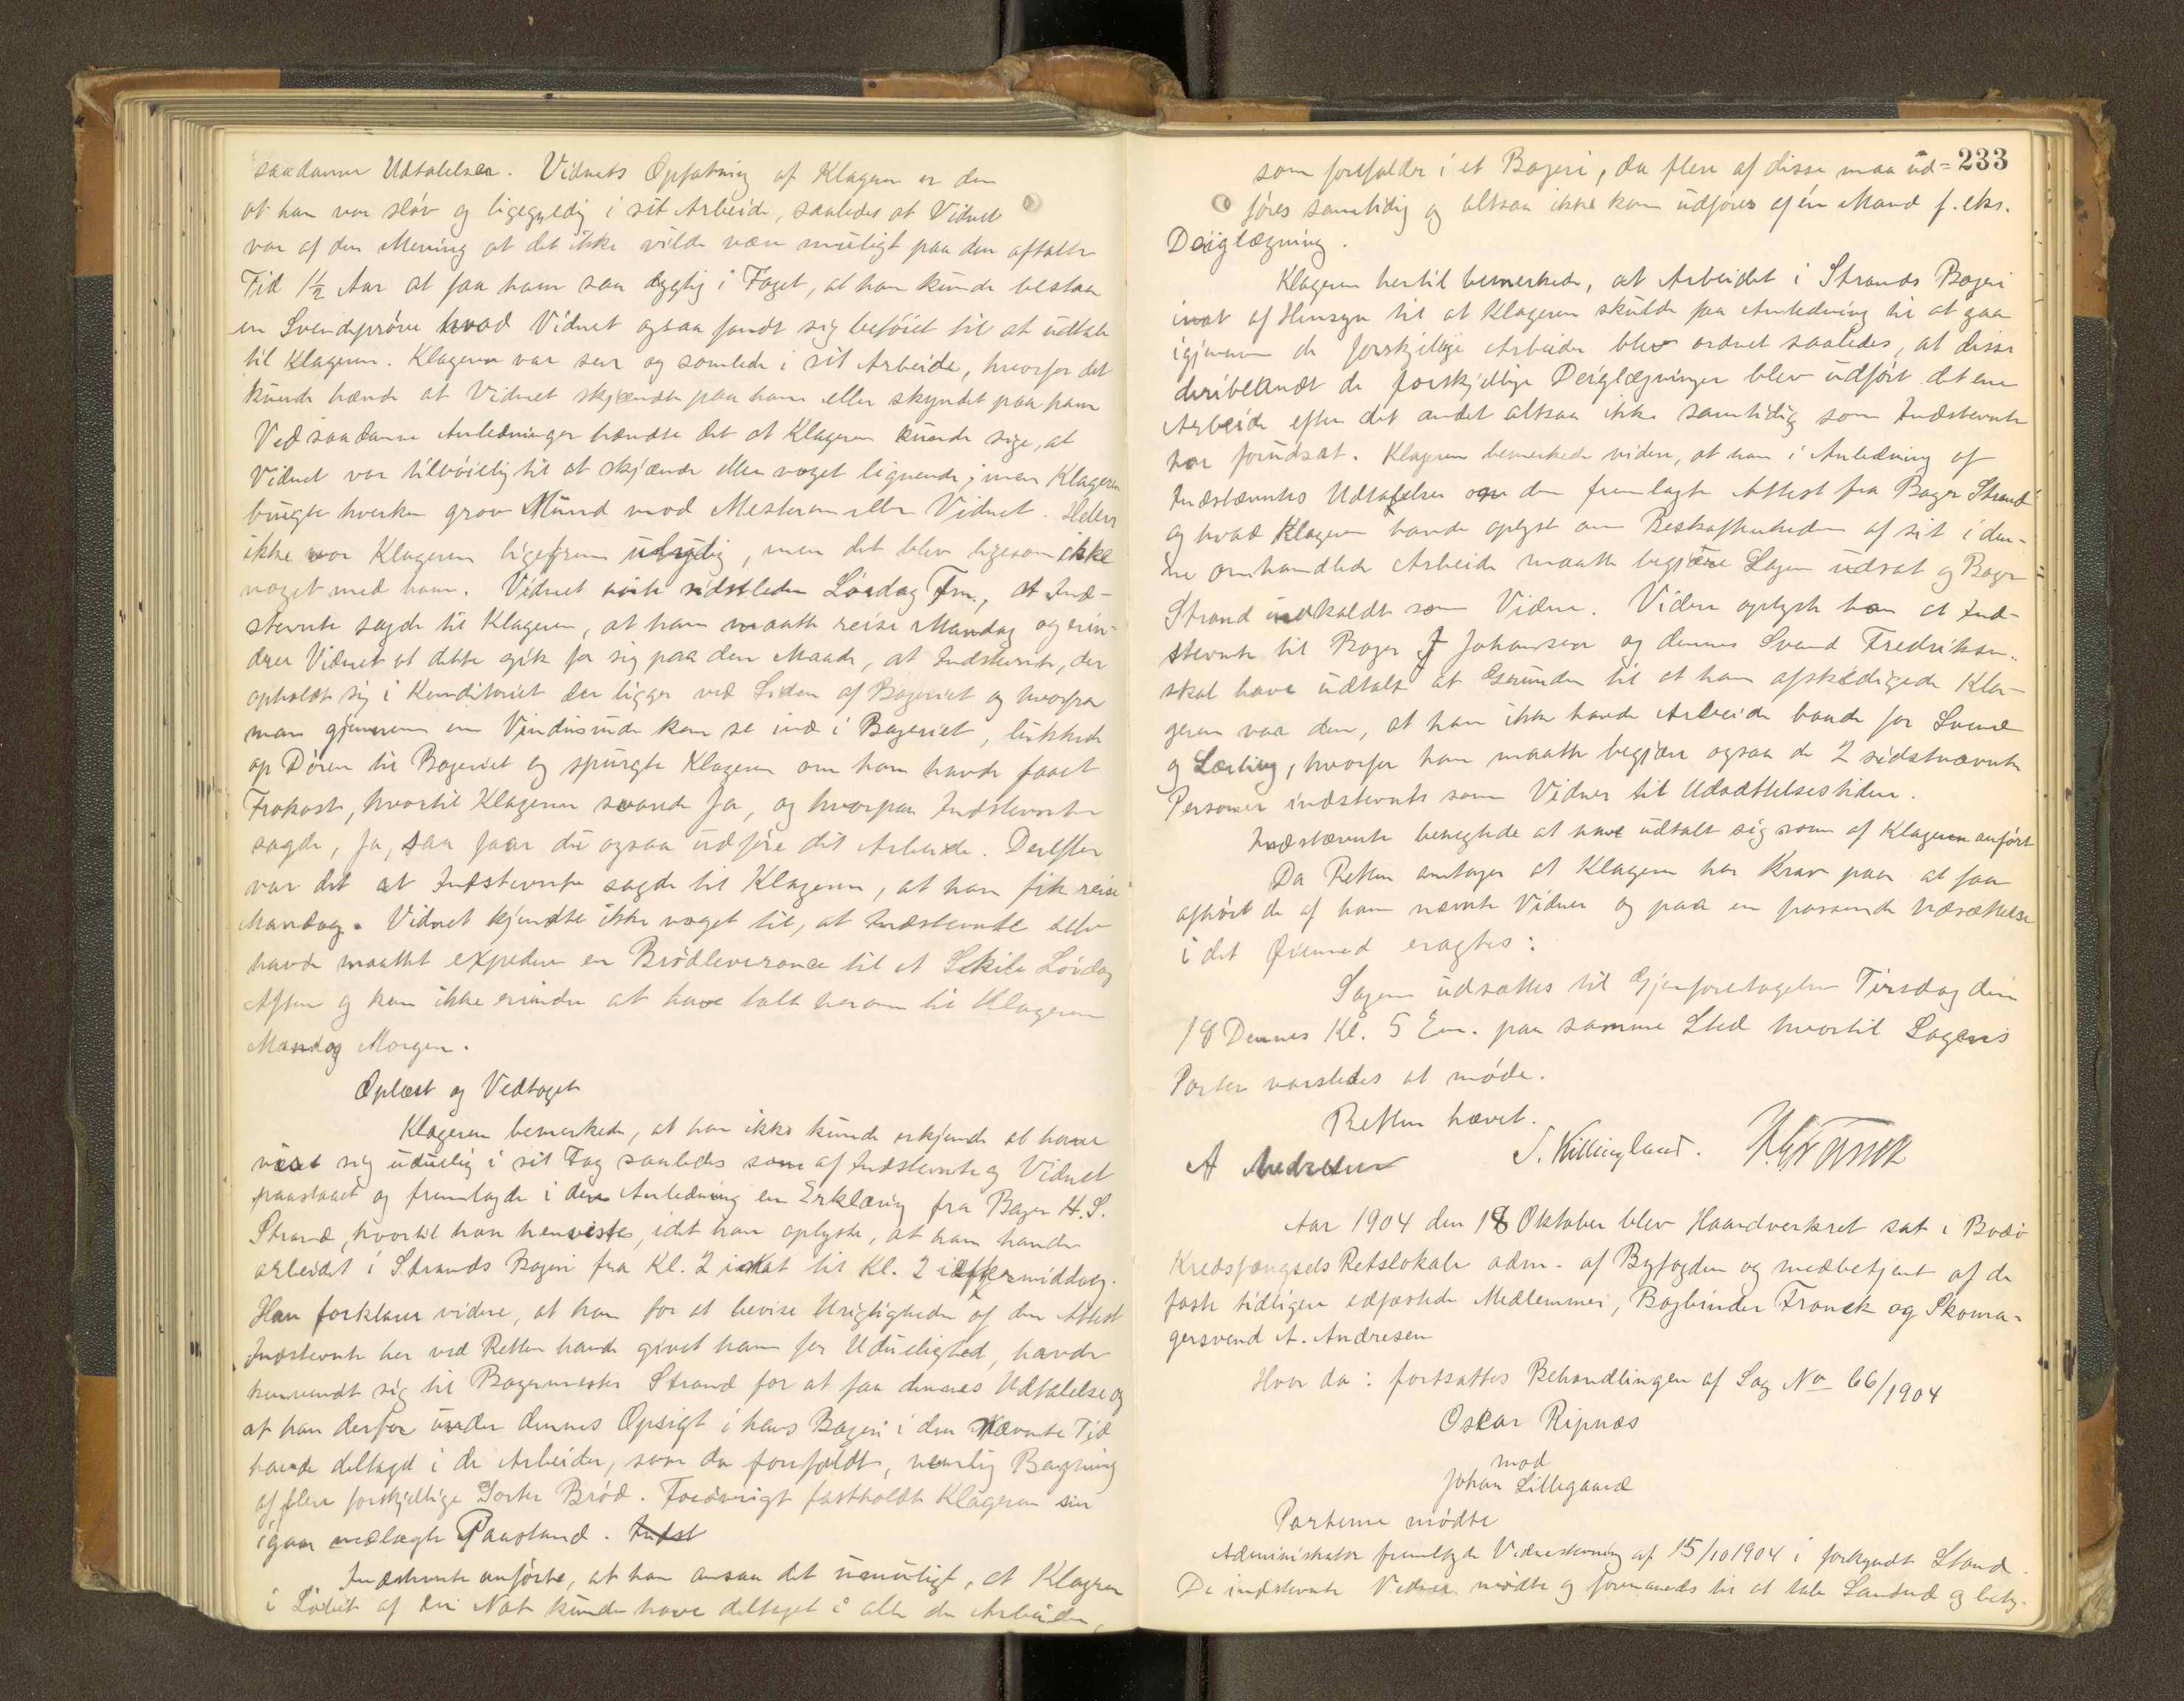 saadanne Udtalelser. Vidnets Opfatning af Klageren er den
at han var sløv og ligegyldig i sit Arbeide, saaledes at Vidnet
var af den Mening at det ikke vilde være muligt paa den aftalte
Tid 1½ Aar at faa ham saa dygtig i Faget, at han kunde bestaa
en Svendeprøve hvad Vidnet ogsaa fandt sig beføiet til at udtale
til Klageren. Klageren var sen og somlede i sit Arbeide, hvorfor det
kunde hænde at Vidnet skjændte paa ham eller skyndet paa ham
Ved saadanne Anledninger hændte det at Klageren kunde sige, at
Vidnet var tilbøielig til at skjænde eller noget lignende; men Klageren
brugte hverken grov Mund mod Mesteren eller Vidnet. Heller
ikke var Klageren ligefrem ulydig, men det blev ligesom ikke
noget med ham. Vidnet hørte sidstleden Lørdag Fm., at Ind-
stevnte sagde til Klageren, at han maatte reise Mandag og erin-
drer Vidnet at dette gik for sig paa den Maade, at Indstevnte, der
opholdt sig i Konditoriet der ligger ved Siden af Bageriet og hvorfra
man gjennem en Vindusrude kan se ind i Bageriet, lukkede
op Døren til Bageriet og spurgte Klageren om han havde faaet
Frokost, hvortil Klageren svarede Ja, og hvorpaa Indstevnte
sagde, Ja, saa faar du ogsaa udføre dit Arbeide. Derefter
var det at Indstevnte sagde til Klageren, at han fik reise
Mandag. Vidnet kjendte ikke noget til, at Indstevnte selv
havde maattet expedere en Brødleverance til et Skib Lørdag
Aften og kan ikke erindre at have talt herom til Klageren
Mandag Morgen.
Oplæst og Vedtaget
Klageren bemerkede, at han ikke kunde erkjende at have
vist sig uduelig i sit Fag saaledes som af Indstevnte og Vidnet
paastaaet og fremlagde i den Anledning en Erklæring fra Bager H. S.
Strand, hvortil han henviste, idet han oplyste, at han havde
arbeidet i Strands Bageri fra Kl. 2 inat til Kl. 2 ieftermiddag.
Han forklarer videre, at han for at bevise Urigtigheden af den Attest
Indstevnte her ved Retten havde givet ham for Uduelighed, havde
henvendt sig til Bagermester Strand for at faa dennes Udtalelse og
at han derfor under dennes Opsigt i hans Bageri i den nævnte Tid
havde deltaget i de Arbeider, som da forefaldt, nemlig Bagning
af flere forskjellige Sorter Brød. Forøvrigt fastholdt Klageren sin
igaar nedlagte Paastand. Indst
Indstevnte anførte, at han ansaa det umuligt, at Klageren
i Løbet af en Nat kunde have deltaget i alle de Arbeider,
233
som forefalder i et Bageri, da flere af disse maa ud-
føres samtidig og altsaa ikke kan udføres af én Mand f. eks.
Deiglægning.
Klageren hertil bemerkede, at Arbeidet i Strands Bageri
inat af Hensyn til at Klageren skulde faa Anledning til at gaa
igjennem de forskjellige Arbeider blev ordnet saaledes, at disse
deriblandt de forskjellige Deiglægninger blev udført det ene
Arbeide efter det andet altsaa ikke samtidig som Indstevnte
har forudsat. Klageren bemerkede videre, at han i Anledning af
Indstævntes Udtalelser om den fremlagte Attest fra Bager Strand
og hvad Klageren havde oplyst om Beskaffenheden af sit i den-
ne omhandlede Arbeide maatte begjære Sagen udsat og Bager
Strand indkaldt som Vidne. Videre oplyste han at Ind-
stevnte til Bager J Johansen og dennes Svend Fredriksen
skal have udtalt at Grunden til at han afskedigede Kla-
geren var den, at han ikke havde Arbeide baade for Svend
og Lærling, hvorfor han maatte begjære ogsaa de 2 sidstnævnte
Personer indstevnte som Vidner til Udsættelsestiden.
Indstævnte benegtede at have udtalt sig som af Klageren anført
Da Retten antager at Klageren har Krav paa at faa
afhørt de af ham nævnte Vidner og paa en passende Udsættelse
i det Øiemed eragtes:
Sagen udsættes til Gjenforetagelse Tirsdag den
18 Dennes Kl. 5 Em. paa samme Sted hvortil Sagens
Parter varsledes at møde.
Retten hævet.
A Andresen S. Killingland.
Aar 1904 den 18 Oktober blev Haandverksret sat i Bodø
Kredsfængsels Retslokale adm. af Byfogden og medbetjent af de
faste tidligere edfæstede Medlemmer, Bogbinder Franck og Skoma-
gersvend A. Andresen
Hvor da: fortsattes Behandlingen af Sag No 66/1904
Oskar Ripnæs
mod
Johan Lillegaard
Parterne mødte
Administrator fremlagde Vidnestevning af 15/10 1904 i forkyndt Stand.
De indstevnte Vidner mødte og formanedes til at tale Sandhed og bety-